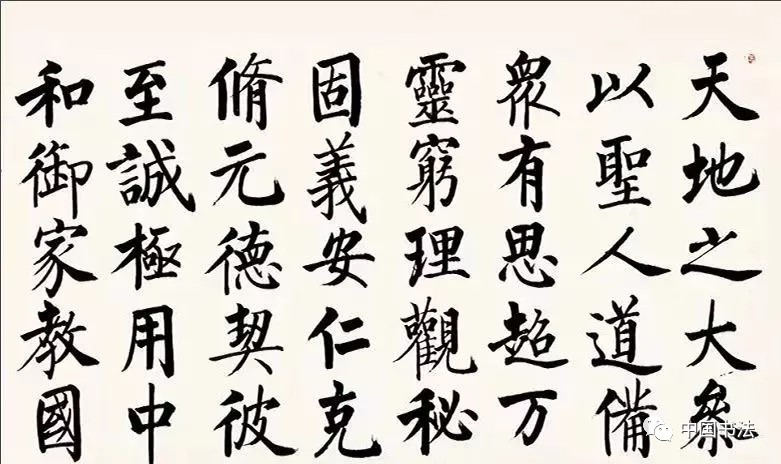 天地之大叅
以聖人道備
衆有思超万
靈窮理觀秘
固義安仁克
脩元德契彼
至誠極用中
和御家教國
中国书法